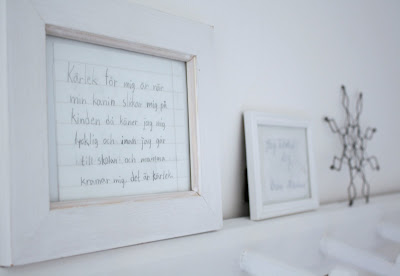 Kärlek för mig är när
min kanin slickar mig på
kinden då känner jag mig
lycklig och innan jag går
till skolan och mamma
kramar mig, det är kärlek.
Jag
dig